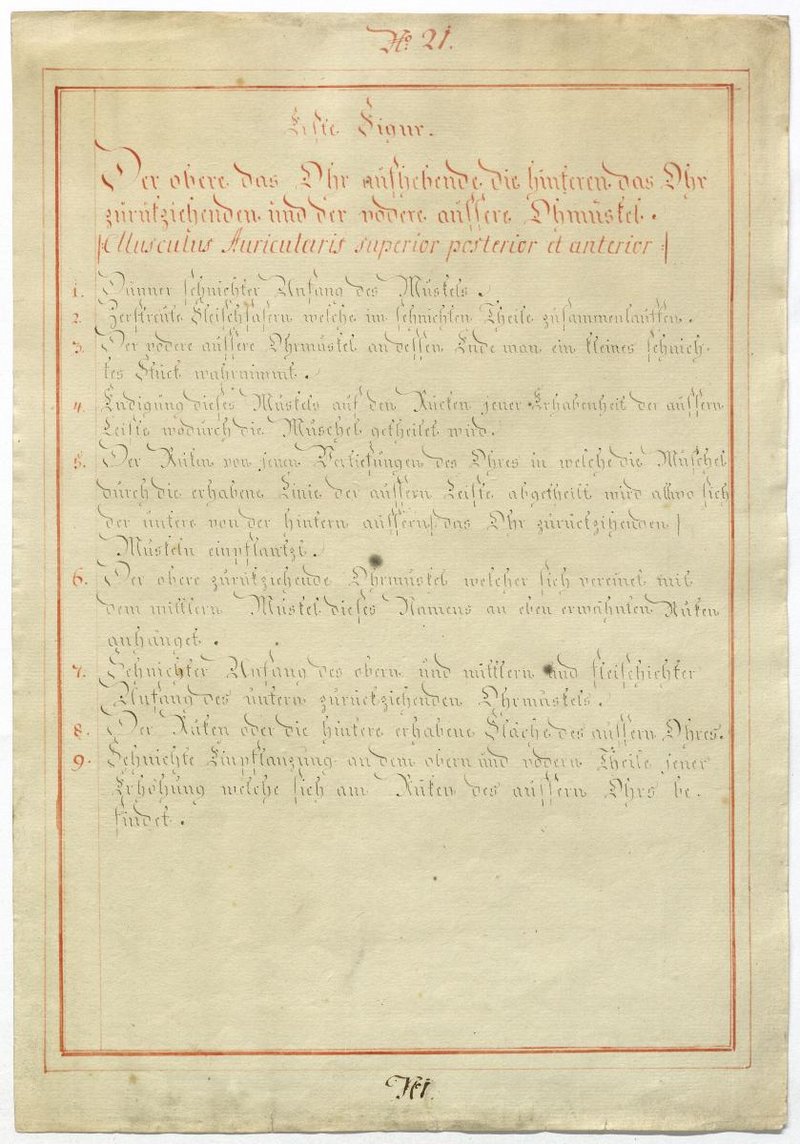 No. 21.
Erste Figur.
Der obere das Ohr aufhebende die hinteren das Ohr
zurükziehenden und der vodere aussere Ohmuskel.
|Musculus Auricularis superior posterior et anterior|
1. Dunner sehnichter Anfang des Muskels.
2. Zerstreute Fleischfasern welche im sehnichten Theile zusammenlauffen.
3. Der vodere aussere Ohrmuskel an dessen Ende man ein kleines sehnich-
tes Stück wahrnimmt.
4. Endigung dieses Muskels auf den Rücken jener Erhabenheit der aussern
Leiste wodurch die Muschel getheilet wird.
5. Der Rüken von jenen Vertiefungen des Ohres in welche die Muschel
durch die erhabene Linie der aussern Leiste abgetheilt wird allwo sich
der untere von der hintern aussern |das Ohr zurückzihenden|
Muskeln einpflantzt.
6. Der obere zurükziehende Ohrmuskel welcher sich vereinet mit
dem mittlern Muskel dieses Namens an eben erwähnten Rüken
anhänget.
7. Sehnichter Anfang des obern und mittlern und fleischichter
Anfang des untern zurückziehenden Ohrmuskels.
8. Der Rüken oder die hintere erhabene Fläche des aussern Ohres.
9. Sehnichte Einpflanzung an dem obern und vodern Theile jener
Erhöhung welche sich am Rüken des aussern Ohrs be-
findet.